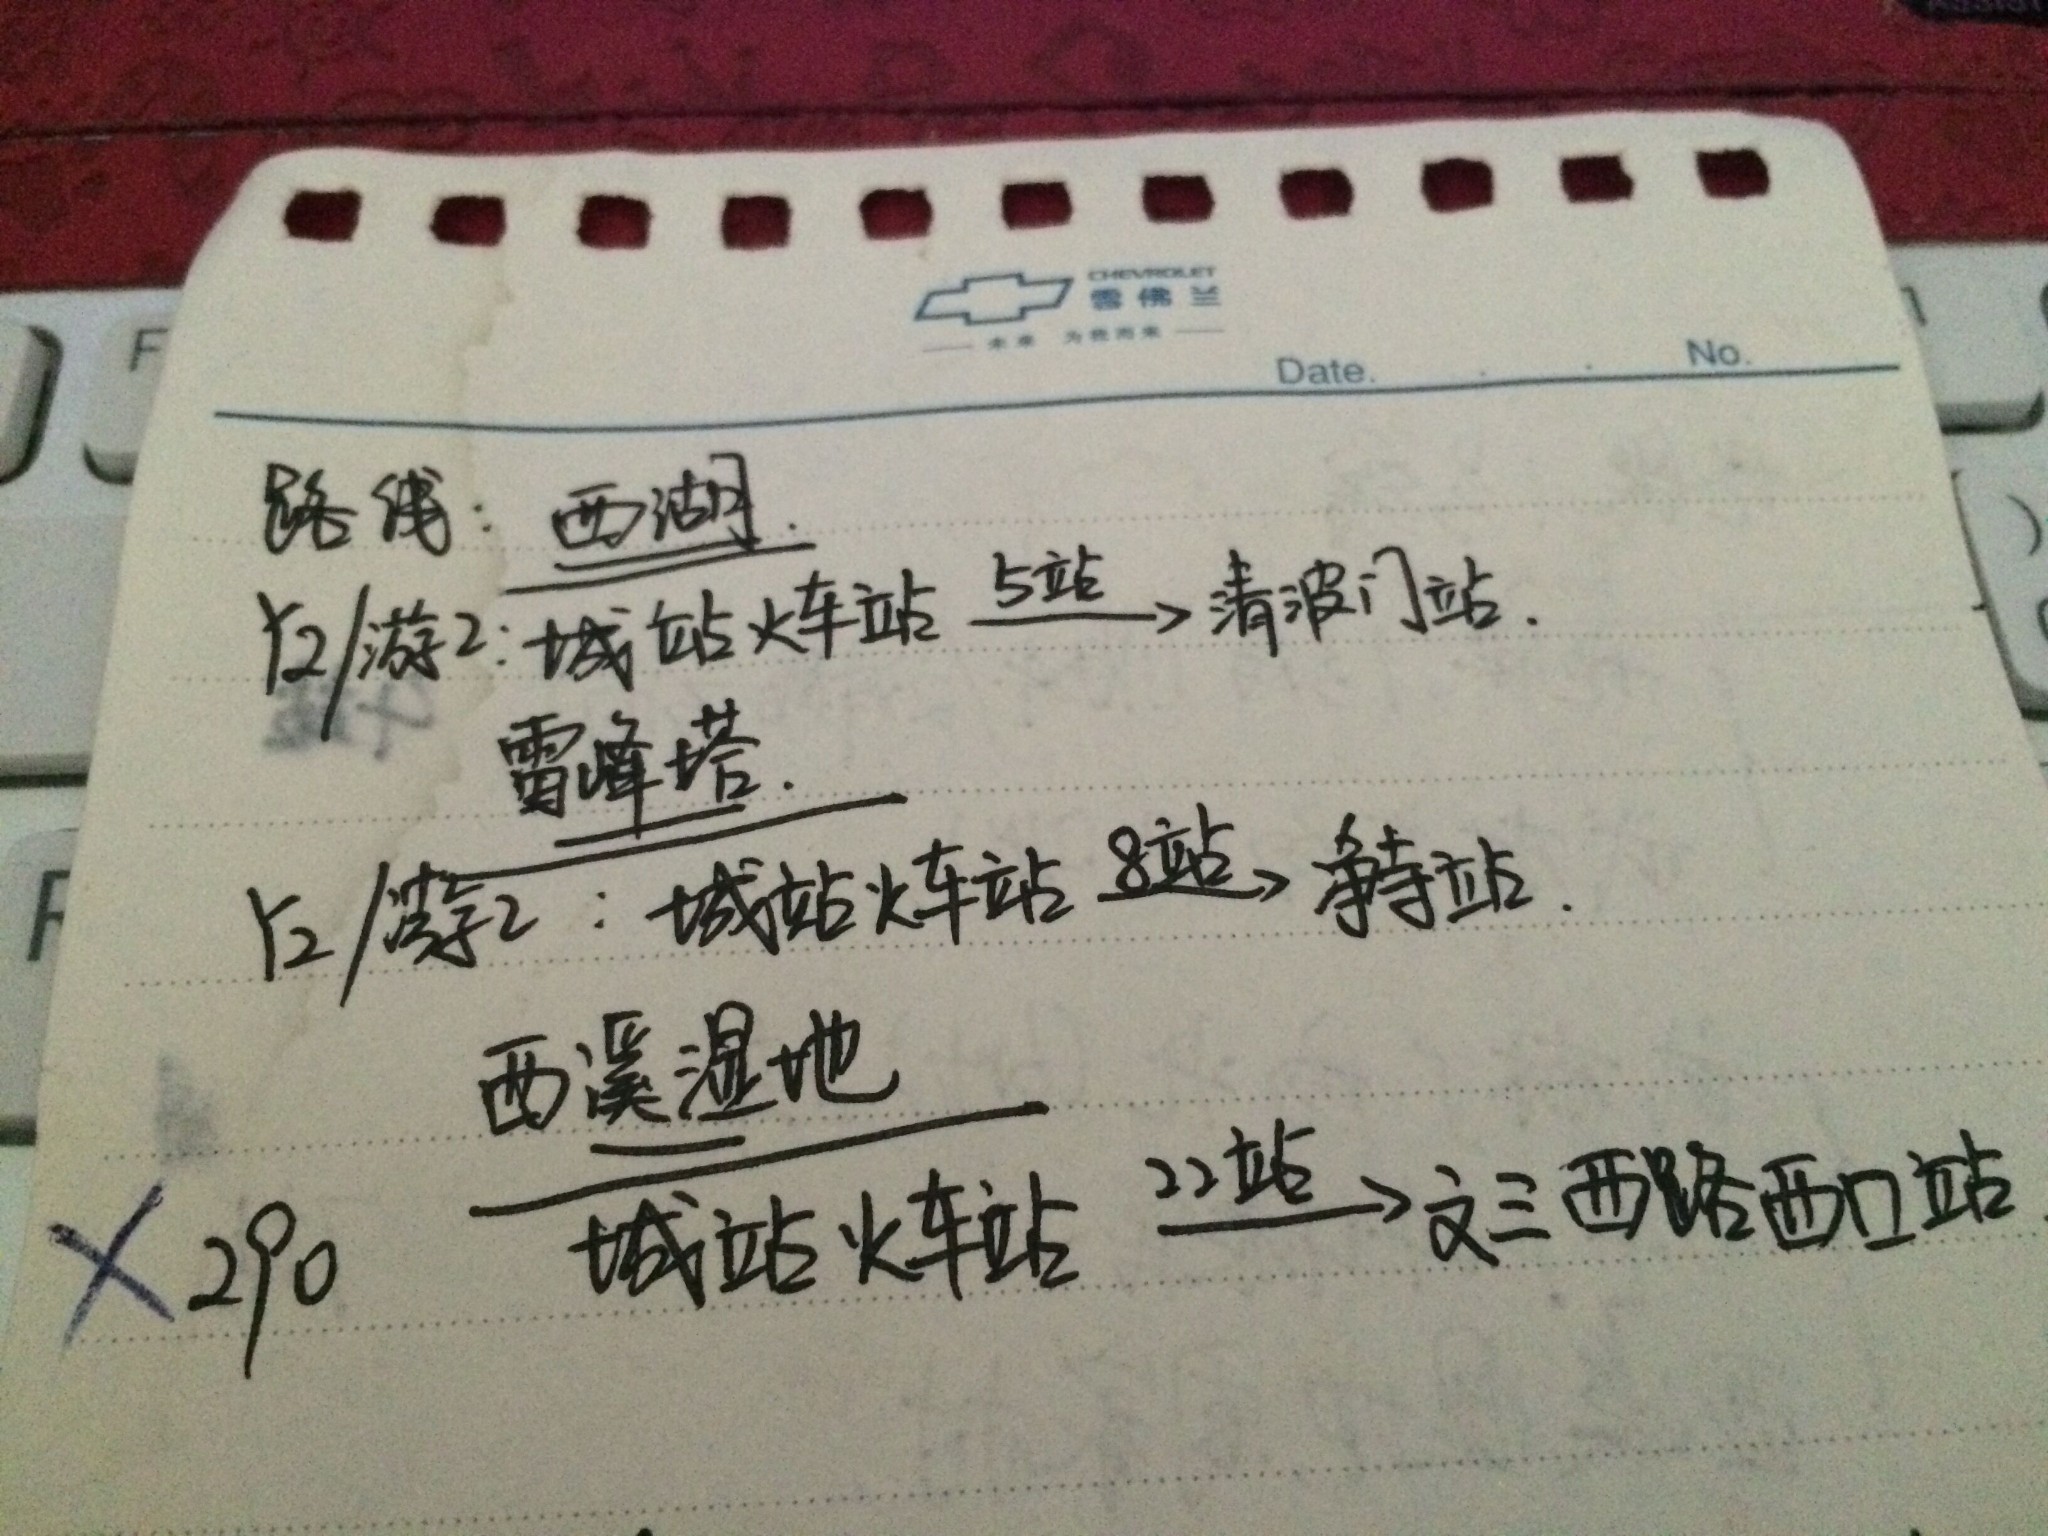 CHEVROLET
雪佛兰
未来 为我而来
Date. No.
路线: 西湖.
Y2/游2: 城站火车站 5站→ 清波门站.
雷峰塔.
Y2/游2: 城站火车站 8站→ 净寺站.
西溪湿地
X 290 城站火车站 22站→ 文三西路西口站.